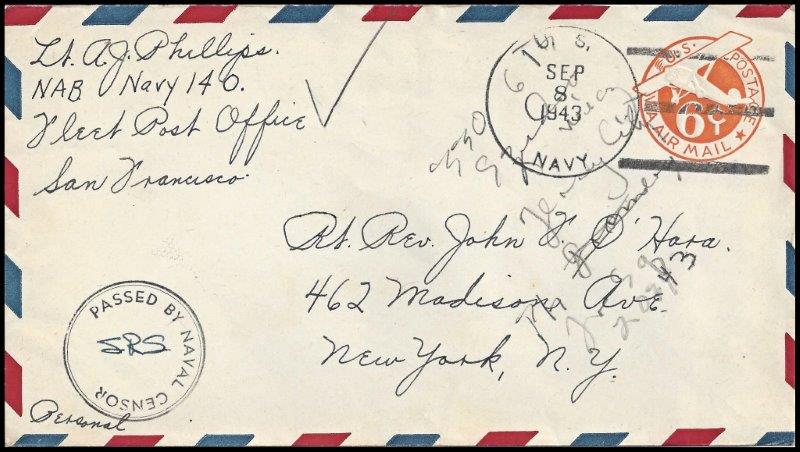 Lt. A.J. Phillips.
NAB Navy 140.
Fleet Post Office
San Francisco.
U. S.
SEP
8
1943
NAVY
U.S. POSTAGE
6¢
VIA AIR MAIL
Rt. Rev. John F. O'Hara.
462 Madison Ave.
New York, N.Y.
PASSED BY NAVAL CENSOR
SRS
Personal